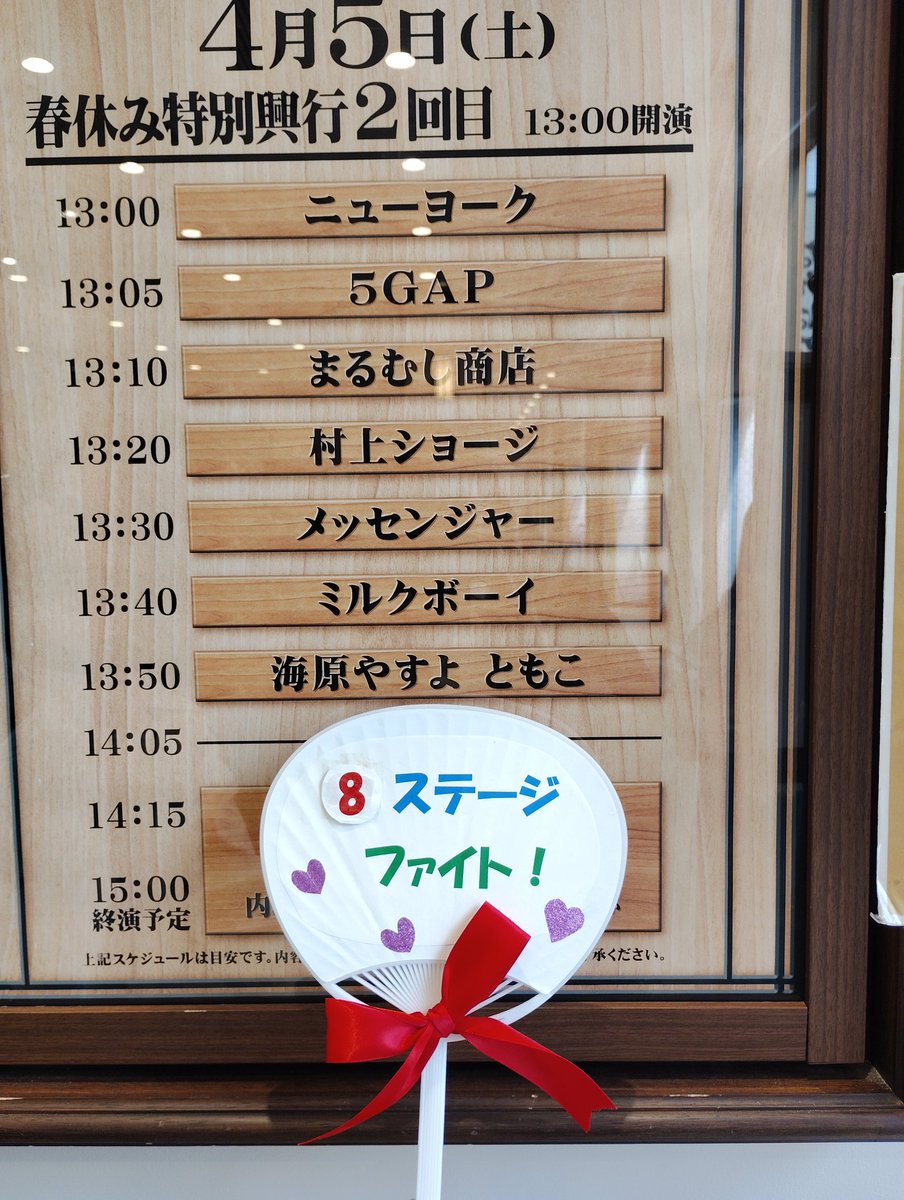 4月5日(土)
春休み特別興行2回目 13:00開演
13:00 ニューヨーク
13:05 5GAP
13:10 まるむし商店
13:20 村上ショージ
13:30 メッセンジャー
13:40 ミルクボーイ
13:50 海原やすよ ともこ
14:05
14:15
15:00 内
終演予定
上記スケジュールは目安です。内容 承ください。
8 ステージ
ファイト!